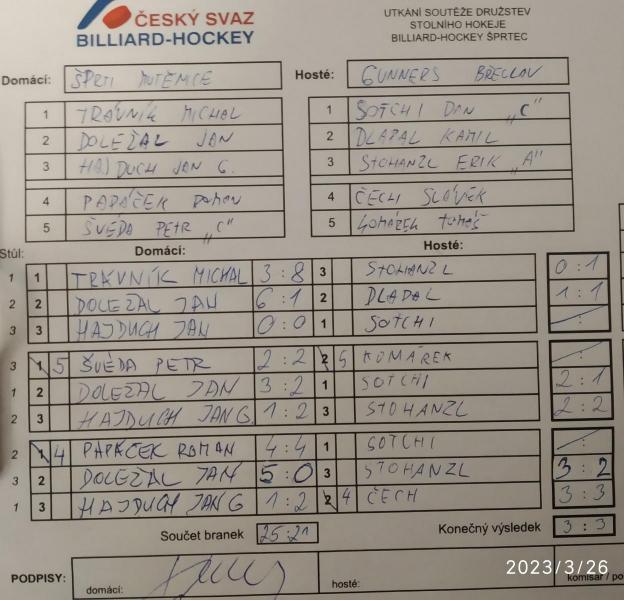 ČESKÝ SVAZ
BILLIARD-HOCKEY
UTKÁNÍ SOUTĚŽE DRUŽSTEV
STOLNÍHO HOKEJE
BILLIARD-HOCKEY ŠPRTEC
Domácí: ŠPRTI MUTĚNICE
Hosté: GUNNERS BŘECLAV
1 TRÁVNÍK MICHAL
2 DOLEŽAL JAN
3 HAJDUCH JAN G.
4 PAPÁČEK ROMAN
5 ŠVÉDA PETR „C“
1 SOTCHI DAN „C“
2 DLAPAL KAMIL
3 STOHANZL ERIK „A“
4 ČECH SLÁVEK
5 KOMÁREK TOMÁŠ
Stůl: Domácí: Hosté:
1 1 TRÁVNÍK MICHAL 3:8 3 STOHANZL 0:1
2 2 DOLEŽAL JAN 6:1 2 DLAPAL 1:1
3 3 HAJDUCH JAN 0:0 1 SOTCHI :
3 1 5 ŠVÉDA PETR 2:2 2 5 KOMÁREK :
1 2 DOLEŽAL JAN 3:2 1 SOTCHI 2:1
2 3 HAJDUCH JAN G. 1:2 3 STOHANZL 2:2
2 1 4 PAPÁČEK ROMAN 4:4 1 SOTCHI :
3 2 DOLEŽAL JAN 5:0 3 STOHANZL 3:2
1 3 HAJDUCH JAN G 1:2 2 4 ČECH 3:3
Součet branek 25:21 Konečný výsledek 3:3
PODPISY: domácí: hosté: komisař / po
2023/3/26